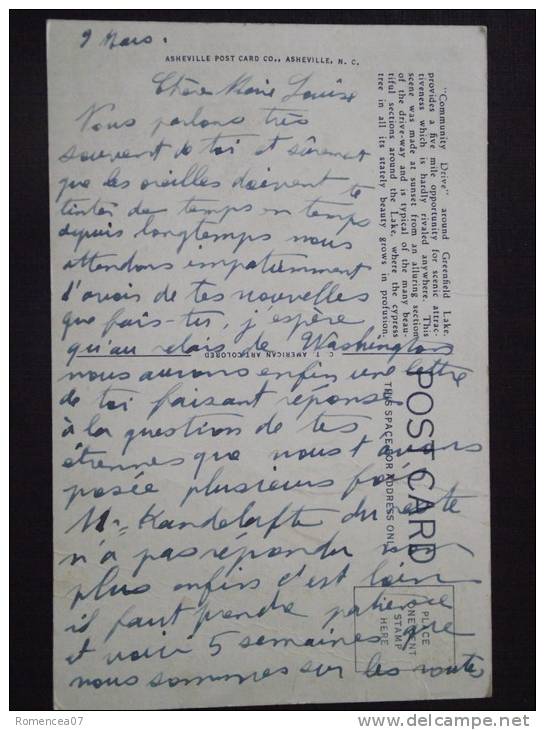 9 Mars.
ASHEVILLE POST CARD CO., ASHEVILLE, N. C.
Chère Marie Louise
Nous parlons très
souvent de toi et sûrement
que les oreilles doivent te
tinter de temps en temps
depuis longtemps nous
attendons impatiemment
d'avoir de tes nouvelles
que fais tu, j'espère
qu'au relais de Washington
nous aurons enfin une lettre
de toi faisant réponse
à la question de tes
étrennes que nous t'avons
posée plusieurs fois,
Mr Kandelafte du reste
n'a pas répondu non
plus enfin c'est loin
il faut prendre patience
et voici 5 semaines que
nous sommes sur les routes
"Community Drive" around Greenfield Lake,
provides a five mile opportunity for scenic attrac-
tiveness which is hardly rivaled anywhere. This
scene was made at sunset from an alluring section
of the drive-way and is typical of the many beau-
tiful sections around the Lake, where the cypress
tree in all its stately beauty grows in profusion.
C. T. AMERICAN ART COLORED
POST CARD
THIS SPACE FOR ADDRESS ONLY
PLACE
ONE CENT
STAMP
HERE
Romencea07